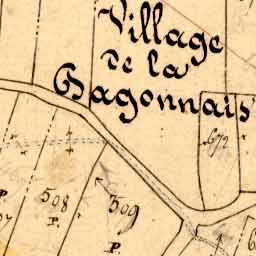 Village
de la
Gagonnais
672
508
P.
509
P.
P.
6